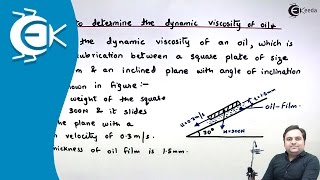 to determine the dynamic viscosity of oil
the dynamic viscosity of an oil, which is
lubrication between a square plate of size
m & an inclined plane with angle of inclination
shown in figure :-
weight of the square
300N & it slides
plane with a
velocity of 0.3 m/s.
thickness of oil film is 1.5mm.
oil-film
30°
W=300N
EKeeda